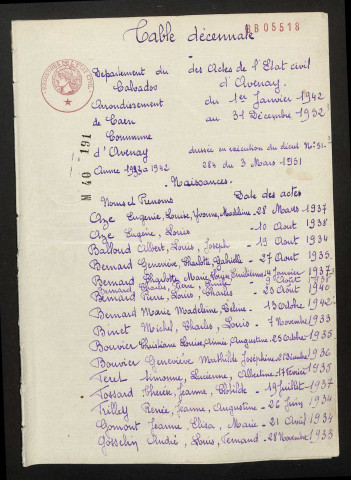 Table décennale
BB05518
Département du Calvados
des Actes de l'Etat civil
d'Avenay.
Arrondissement de Caen
du 1er Janvier 1942
au 31 Décembre 1932
Commune d'Avenay
dressée en exécution du décret N° 51.
284 du 3 Mars 1951
Année 1933 à 1942
M 40 191
Naissances.
Noms et Prénoms Date des actes
Aze Eugénie, Louise, Yvonne, Madeleine - 28 Mars 1937
Aze Eugène, Louis - 10 Août 1938
Balloud Albert, Louis, Joseph - 19 Août 1934
Bernard Geneviève, Charlotte, Gabrielle - 27 Août 1935
Bernard Charlotte Marie, Emilienne 14 Janvier 1937
Bernard Charles, Pierre, 9 Août 1938
Bernard Pierre, Louis, Charles - 23 Août 1940
Bernard Marie Madeleine, Céline - 13 Octobre 1942
Binet Michel, Charles, Louis - 7 Novembre 1933
Bouvier Christiane Louise, Anne Augustine - 23 Octobre 1935
Bouvier Geneviève Mathilde Joséphine 21 Décembre 1936
Feret Simonne, Lucienne, Albertine - 17 Février 1935
Fossard Thérèse, Jeanne, Clotilde - 19 Juillet - 1937
Trilley Renée, Jeanne, Augustine - 26 Juin 1934
Gomont Jeanne Elisa, Marie - 21 Avril 1934
Gosselin André, Louis, Fernand - 28 Novembre 1933